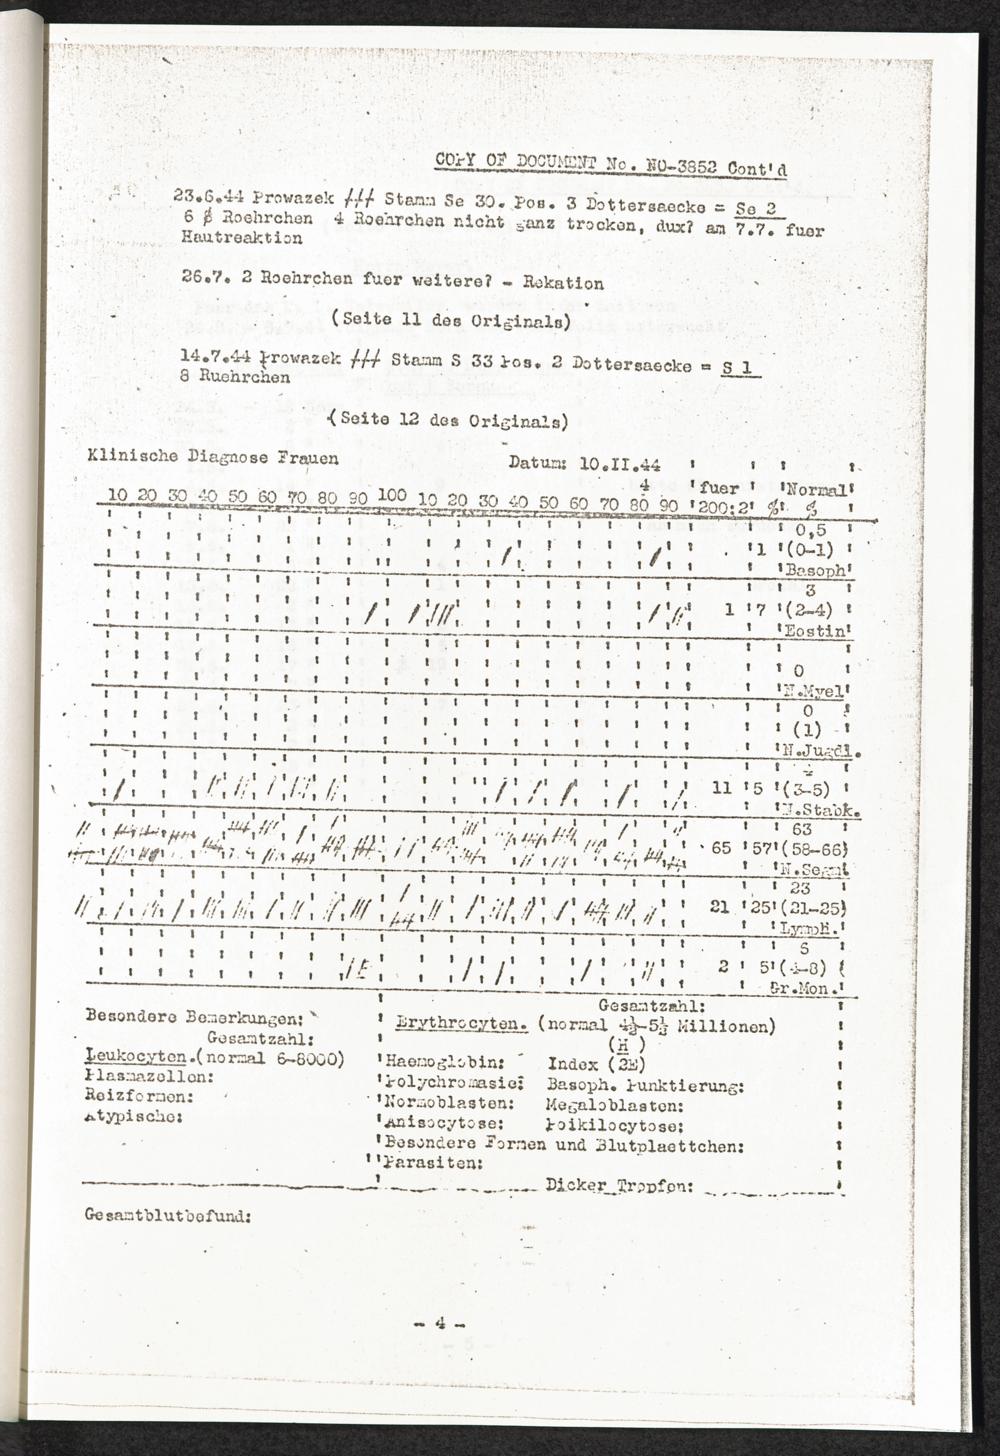 COPY OF DOCUMENT No. NO-3852 Cont'd
23.6.44 Prowazek /// Stamm Se 30. Pos. 3 Dottersaecke = Se 2
6 Roehrchen 4 Roehrchen nicht ganz trocken, dux? am 7.7. fuer
Hautreaktion
26.7. 2 Roehrchen fuer weitere? - Rekation
(Seite 11 des Originals)
14.7.44 Prowazek /// Stamm S 33 Pos. 2 Dottersaecke = S 1
8 Ruehrchen
(Seite 12 des Originals)
Klinische Diagnose Frauen Datum: 10.II.44
4 fuer Normal
10 20 30 40 50 60 70 80 90 100 10 20 30 40 50 60 70 80 90 200:2 % %
0,5
1 (0-1)
Basoph
3
1 7 (2-4)
Eostin
0
N.Myel
0
(1)
N.Jugdl.
4
11 5 (3-5)
N.Stabk.
63
65 57 (58-66)
N.Segmt
23
21 25 (21-25)
Lymph.
2 5 (4-8)
Gr.Mon.
Gesamtzahl:
Besondere Bemerkungen: Erythrocyten. (normal 4½-5½ Millionen)
Gesamtzahl: (H )
Leukocyten.(normal 6-8000) Haemoglobin: Index (2E)
Plasmazellen: Polychromasie: Basoph. Punktierung:
Reizformen: Normoblasten: Megaloblasten:
Atypische: Anisocytose: Poikilocytose:
Besondere Formen und Blutplaettchen:
Parasiten:
Dicker Tropfen:
Gesamtblutbefund:
- 4 -